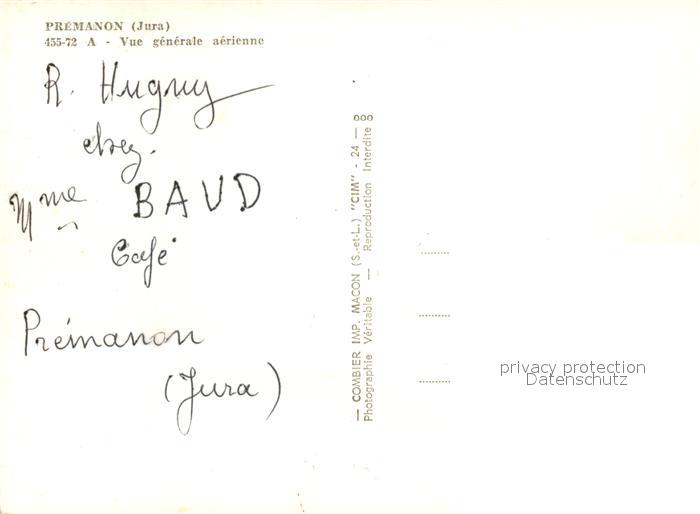 PRÉMANON (Jura)
455-72 A - Vue générale aérienne
R. Huguy
chez.
Mme BAUD
Café
Prémanon
(Jura)
— COMBIER IMP. MACON (S.-et-L.) "CIM" - 24 —
Photographie Véritable — Reproduction Interdite
privacy protection
Datenschutz